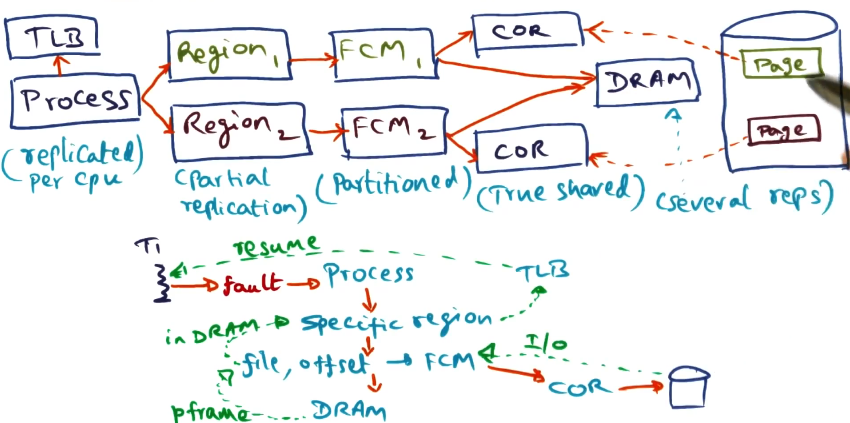 TLB
Process
(replicated)
per cpu
Region1
Region2
(partial
replication)
FCM1
FCM2
(Partitioned)
COR
COR
(True shared)
DRAM
(several reps)
Page
Page
T1
resume
fault
Process
TLB
in DRAM
specific region
I/O
file, offset
FCM
COR
pframe
DRAM